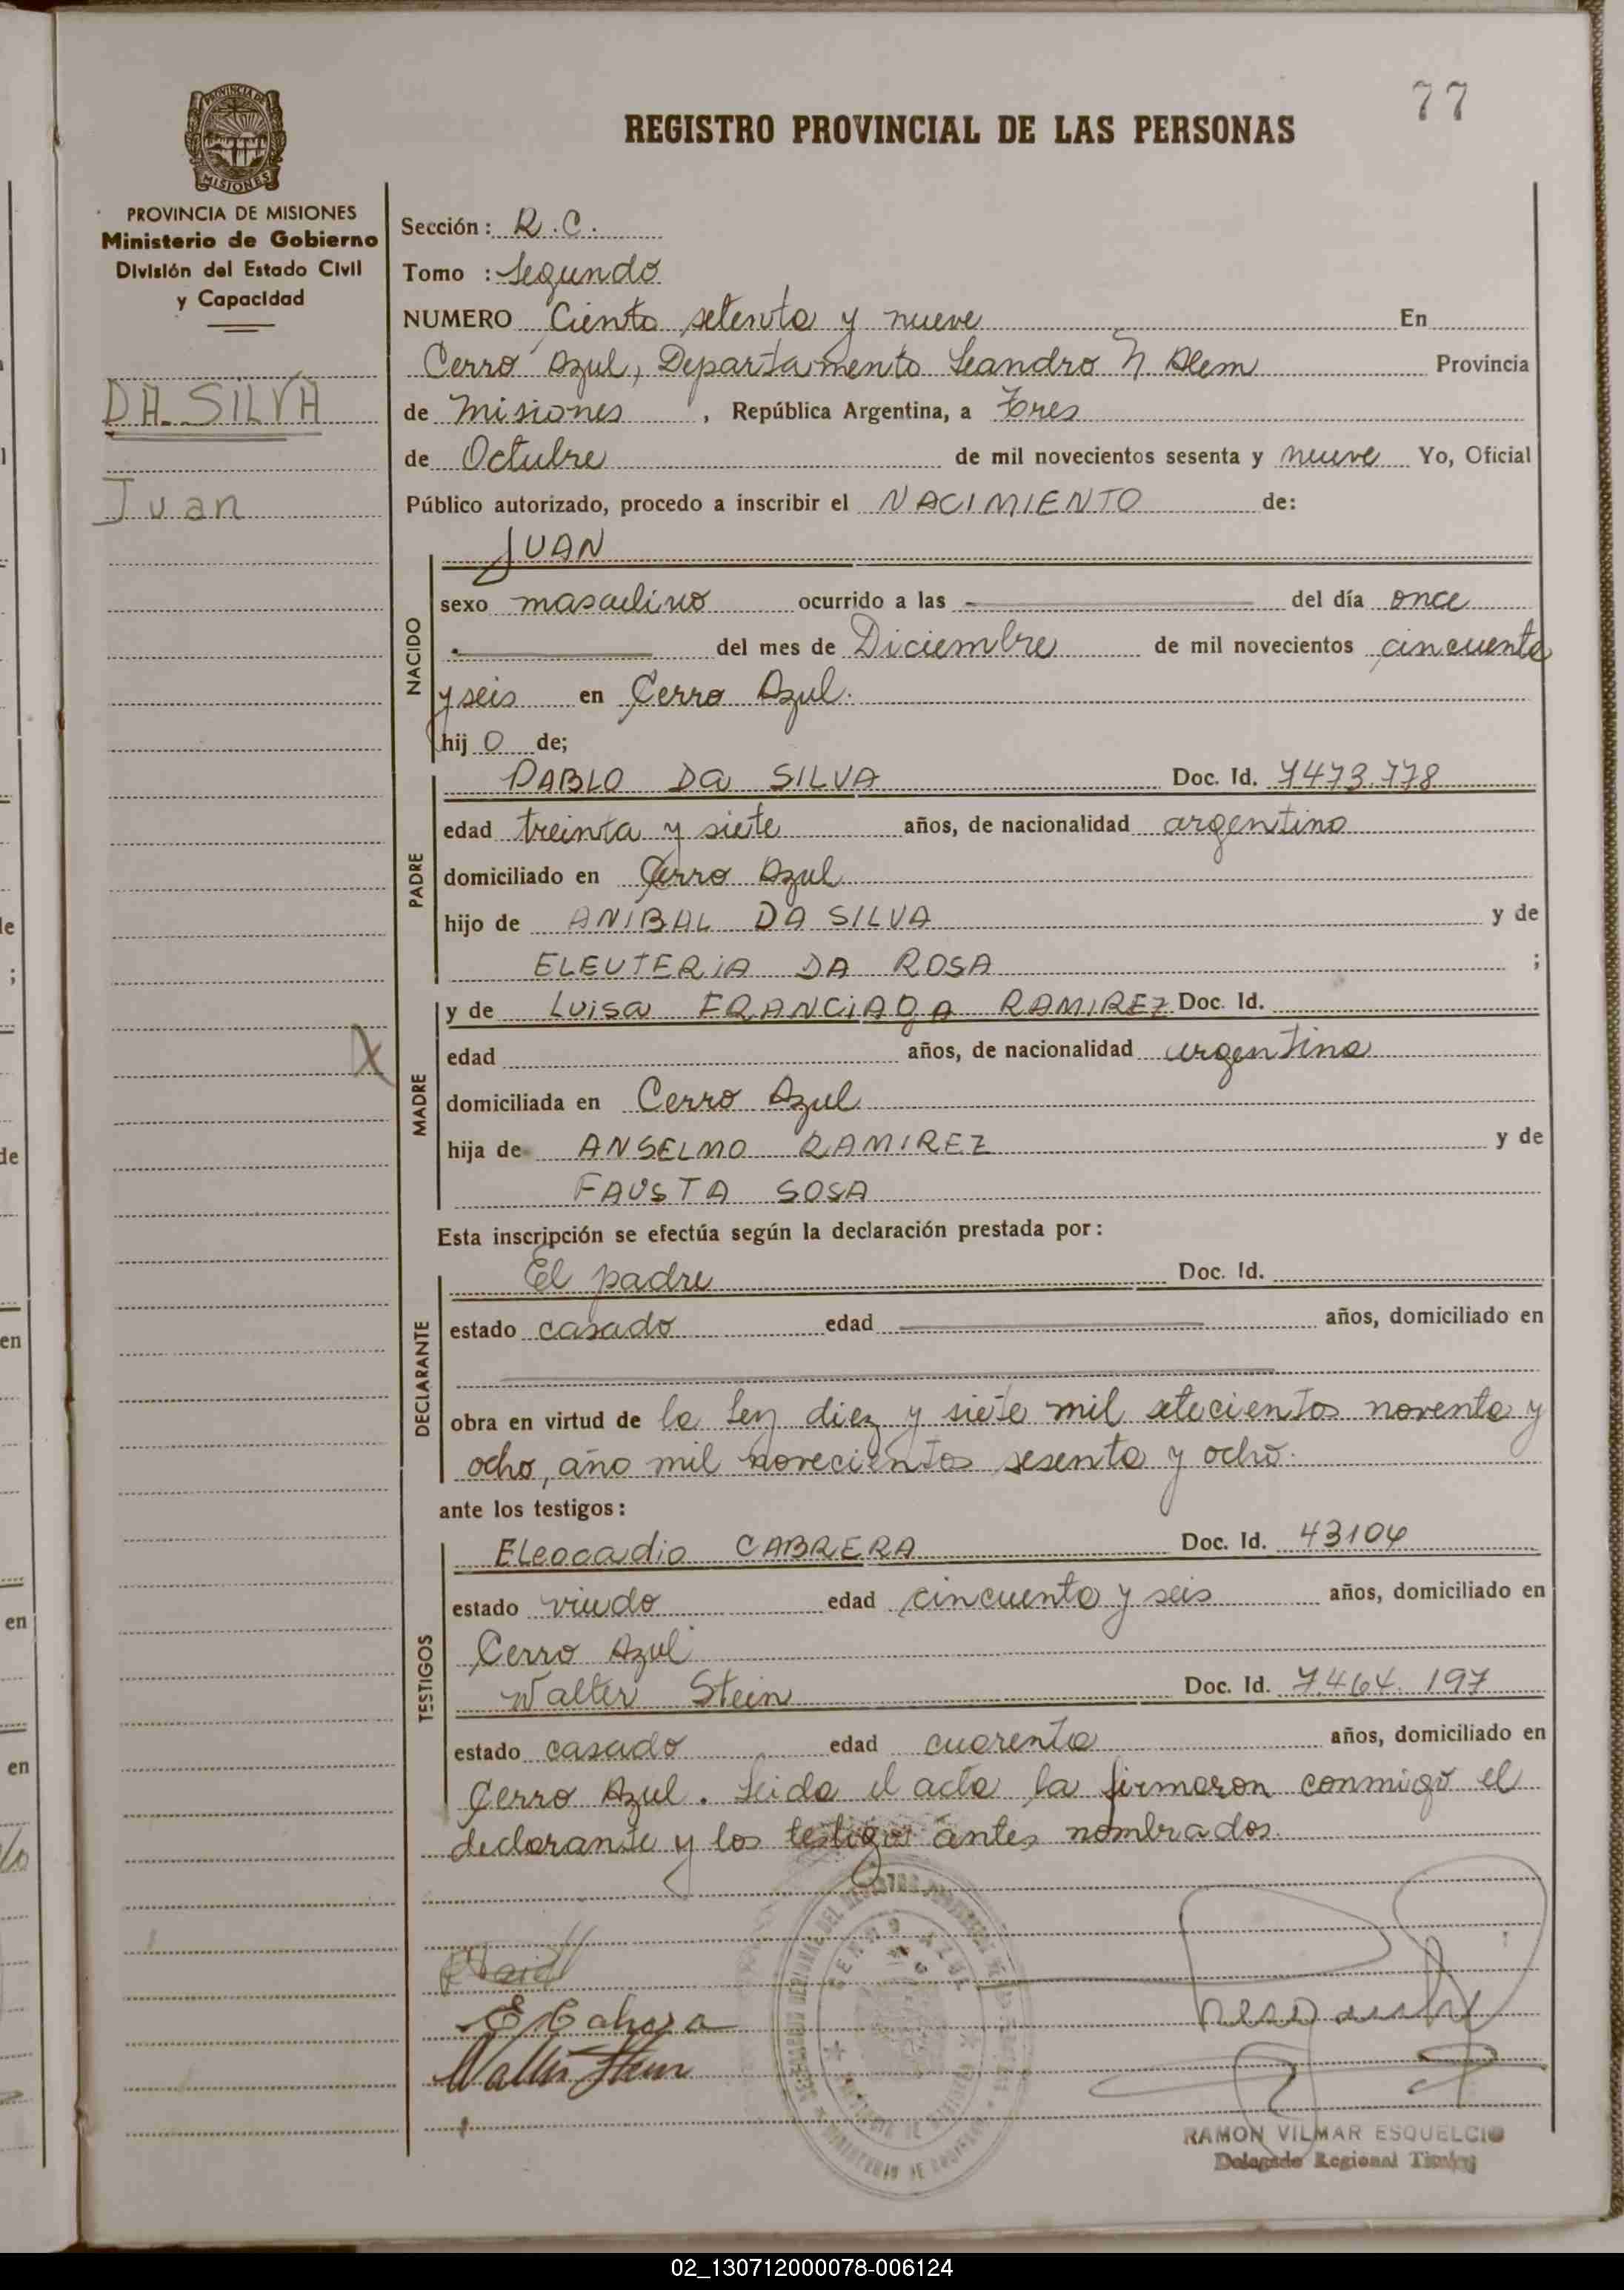 77
REGISTRO PROVINCIAL DE LAS PERSONAS
PROVINCIA DE MISIONES
Ministerio de Gobierno
División del Estado Civil
y Capacidad
DA SILVA
Juan
Sección: R.C.
Tomo : Segundo
NUMERO Ciento setenta y nueve En
Cerro Azul, Departamento Leandro N. Alem Provincia
de Misiones , República Argentina, a Tres
de Octubre de mil novecientos sesenta y nueve Yo, Oficial
Público autorizado, procedo a inscribir el NACIMIENTO de:
NACIDO
JUAN
sexo masculino ocurrido a las del día once
del mes de Diciembre de mil novecientos cincuenta
y seis en Cerro Azul.
hij o de;
PADRE
PABLO Da SILVA Doc. Id. 7473.778
edad treinta y siete años, de nacionalidad argentino
domiciliado en Cerro Azul
hijo de ANIBAL DA SILVA y de
ELEUTERiA DA ROSA ;
MADRE
y de Luisa RAMIREZ Doc. Id.
edad años, de nacionalidad argentina
domiciliada en Cerro Azul
hija de ANSELMO RAMIREZ y de
FAUSTA SOSA
Esta inscripción se efectúa según la declaración prestada por:
DECLARANTE
El padre Doc. Id.
estado casado edad años, domiciliado en
obra en virtud de la Ley diez y siete mil setecientos noventa y
ocho, año mil novecientos sesenta y ocho.
ante los testigos:
TESTIGOS
Eleocadio CABRERA Doc. Id. 43104
estado viudo edad cincuenta y seis años, domiciliado en
Cerro Azul
Walter Stein Doc. Id. 7.464.197
estado casado edad cuarenta años, domiciliado en
Cerro Azul. Leida el acta la firmaron conmigo el
declarante y los testigos antes nombrados.
Walter Stein
CERRO AZUL
RAMON VILMAR ESQUELCIO
Delegado Regional
02_130712000078-006124